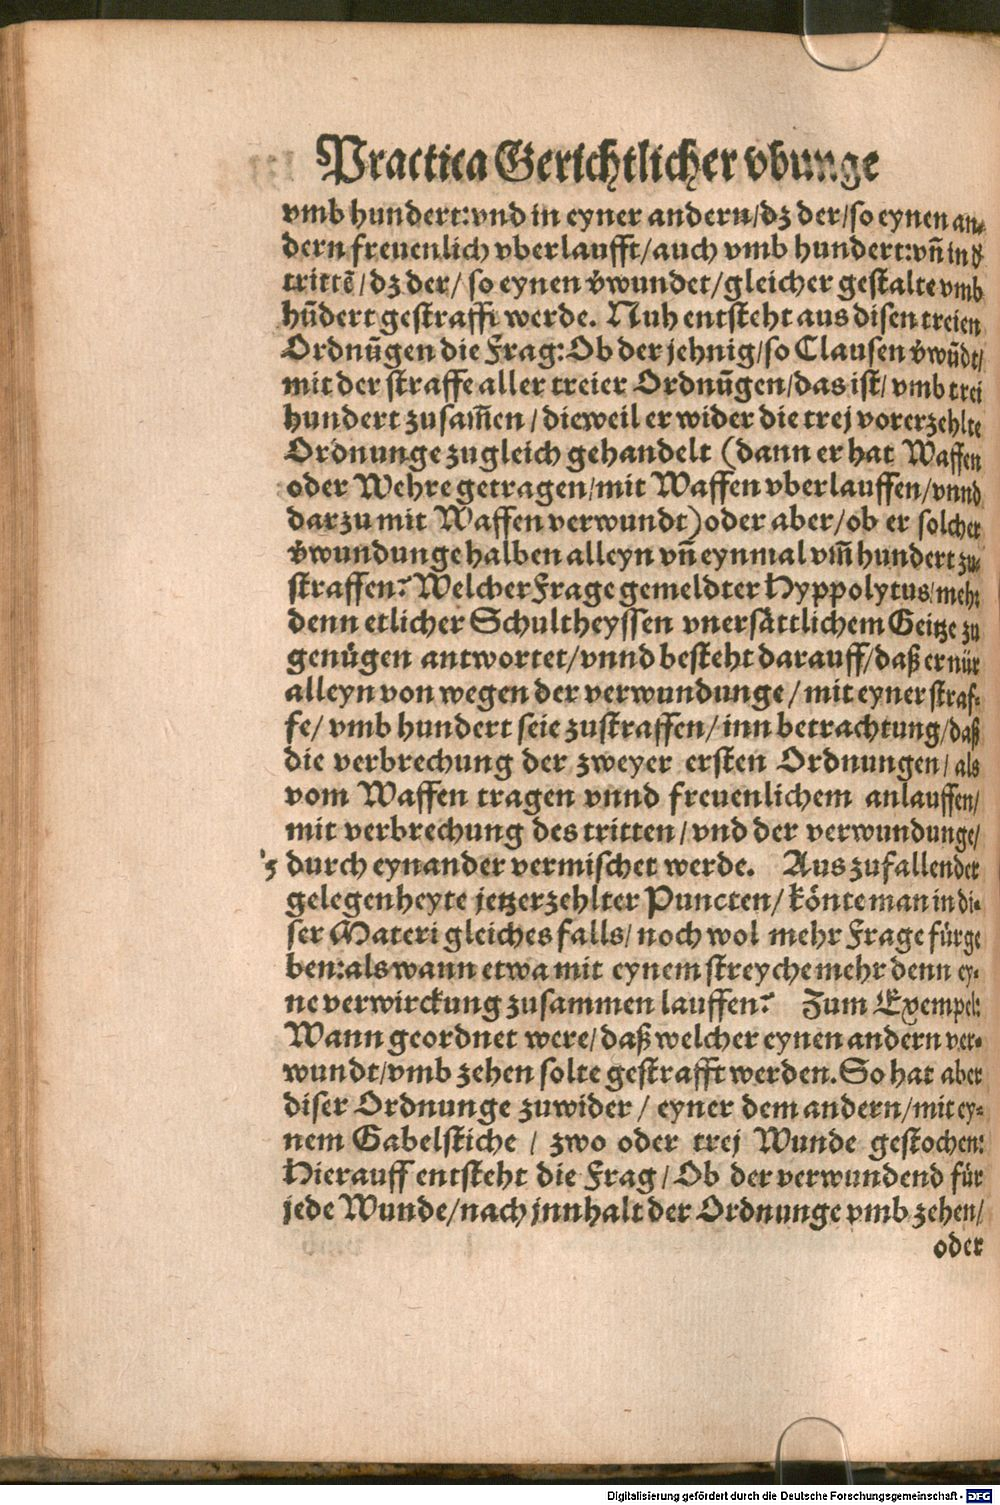 Practica Gerichtlicher vbunge
vmb hundert: vnd in eyner andern/ dz der/ so eynen an-
dern freuenlich vberlaufft/ auch vmb hundert: vñ in d̕
trittẽ/ dz der/ so eynen v̕wundet/ gleicher gestalte vmb
hũdert gestrafft werde. Nuh entsteht aus disen treien
Ordnũgen die Frag: Ob der jehnig/ so Clausen v̕wũdt/
mit der straffe aller treier Ordnũgen/ das ist/ vmb trei
hundert zusam̃en/ dieweil er wider die trej vorerzehlte
Ordnunge zugleich gehandelt (dann er hat Waffen
oder Wehre getragen/ mit Waffen vberlauffen/ vnnd
darzu mit Waffen verwundt) oder aber/ ob er solcher
v̕wundunge halben alleyn vñ eynmal vm̃ hundert zu-
straffen? Welcher Frage gemeldter Hyppolytus/ mehr
denn etlicher Schultheyssen vnersättlichem Geitze zu
genügen antwortet/ vnnd besteht darauff/ daß er nür
alleyn von wegen der verwundunge/ mit eyner straf-
fe/ vmb hundert seie zustraffen/ inn betrachtung/ daß
die verbrechung der zweyer ersten Ordnungen/ als
vom Waffen tragen vnnd freuenlichem anlauffen/
mit verbrechung des tritten/ vnd der verwundunge/
durch eynander vermischet werde. Aus zufallender
gelegenheyte jetzerzehlter Puncten/ könte man in di-
ser Materi gleiches falls/ noch wol mehr Frage fürge
ben: als wann etwa mit eynem streyche mehr denn ey-
ne verwirckung zusammen lauffen? Zum Exempel:
Wann geordnet were/ daß welcher eynen andern ver-
wundt/ vmb zehen solte gestrafft werden. So hat aber
diser Ordnunge zuwider/ eyner dem andern/ mit ey-
nem Gabelstiche/ zwo oder trej Wunde gestochen:
Hierauff entsteht die Frag/ Ob der verwundend für
jede Wunde/ nach jnnhalt der Ordnunge vmb zehen/
oder
Digitalisierung gefördert durch die Deutsche Forschungsgemeinschaft - DFG